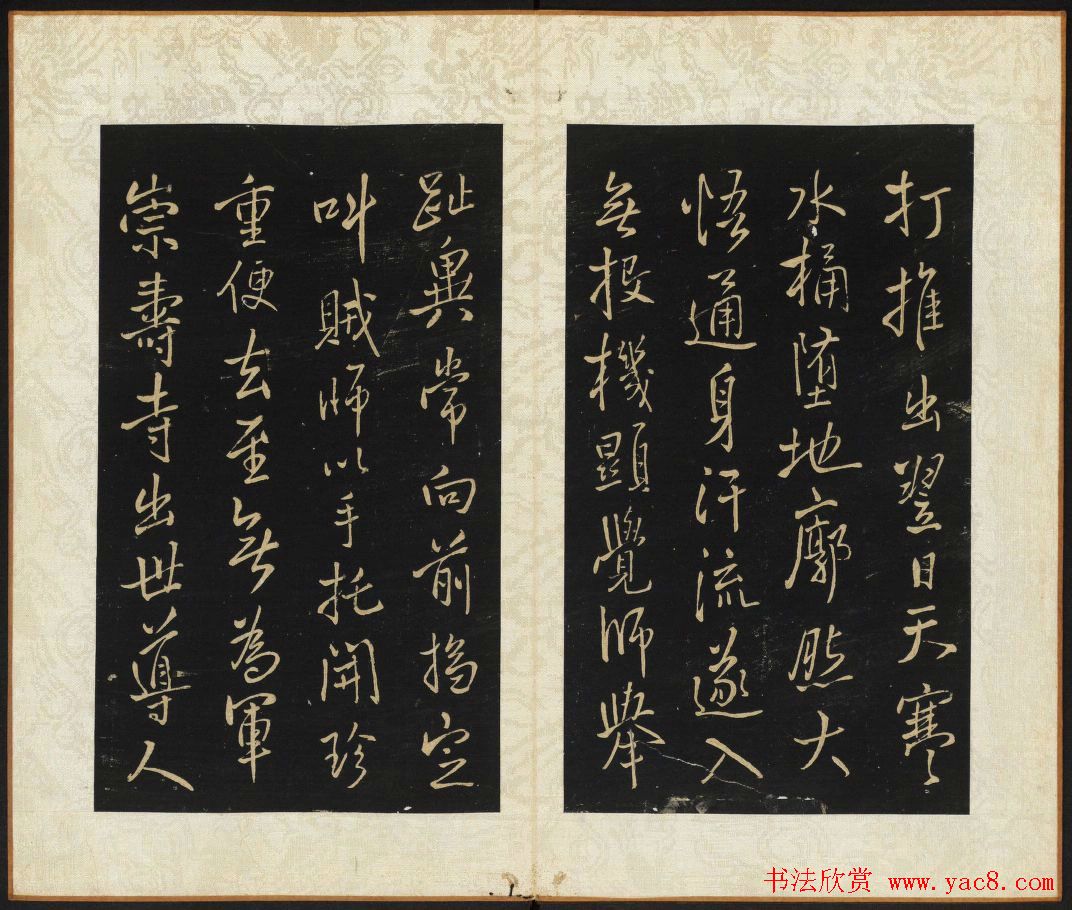 打推出翌日天寒
水桶堕地廓然大
悟通身汗流遂入
無投機顯覺師舉
趾巽常向前搊定
叫賊師以手托開珍
重便去至無為軍
崇壽寺出世導人
书法欣赏 www.yac8.com